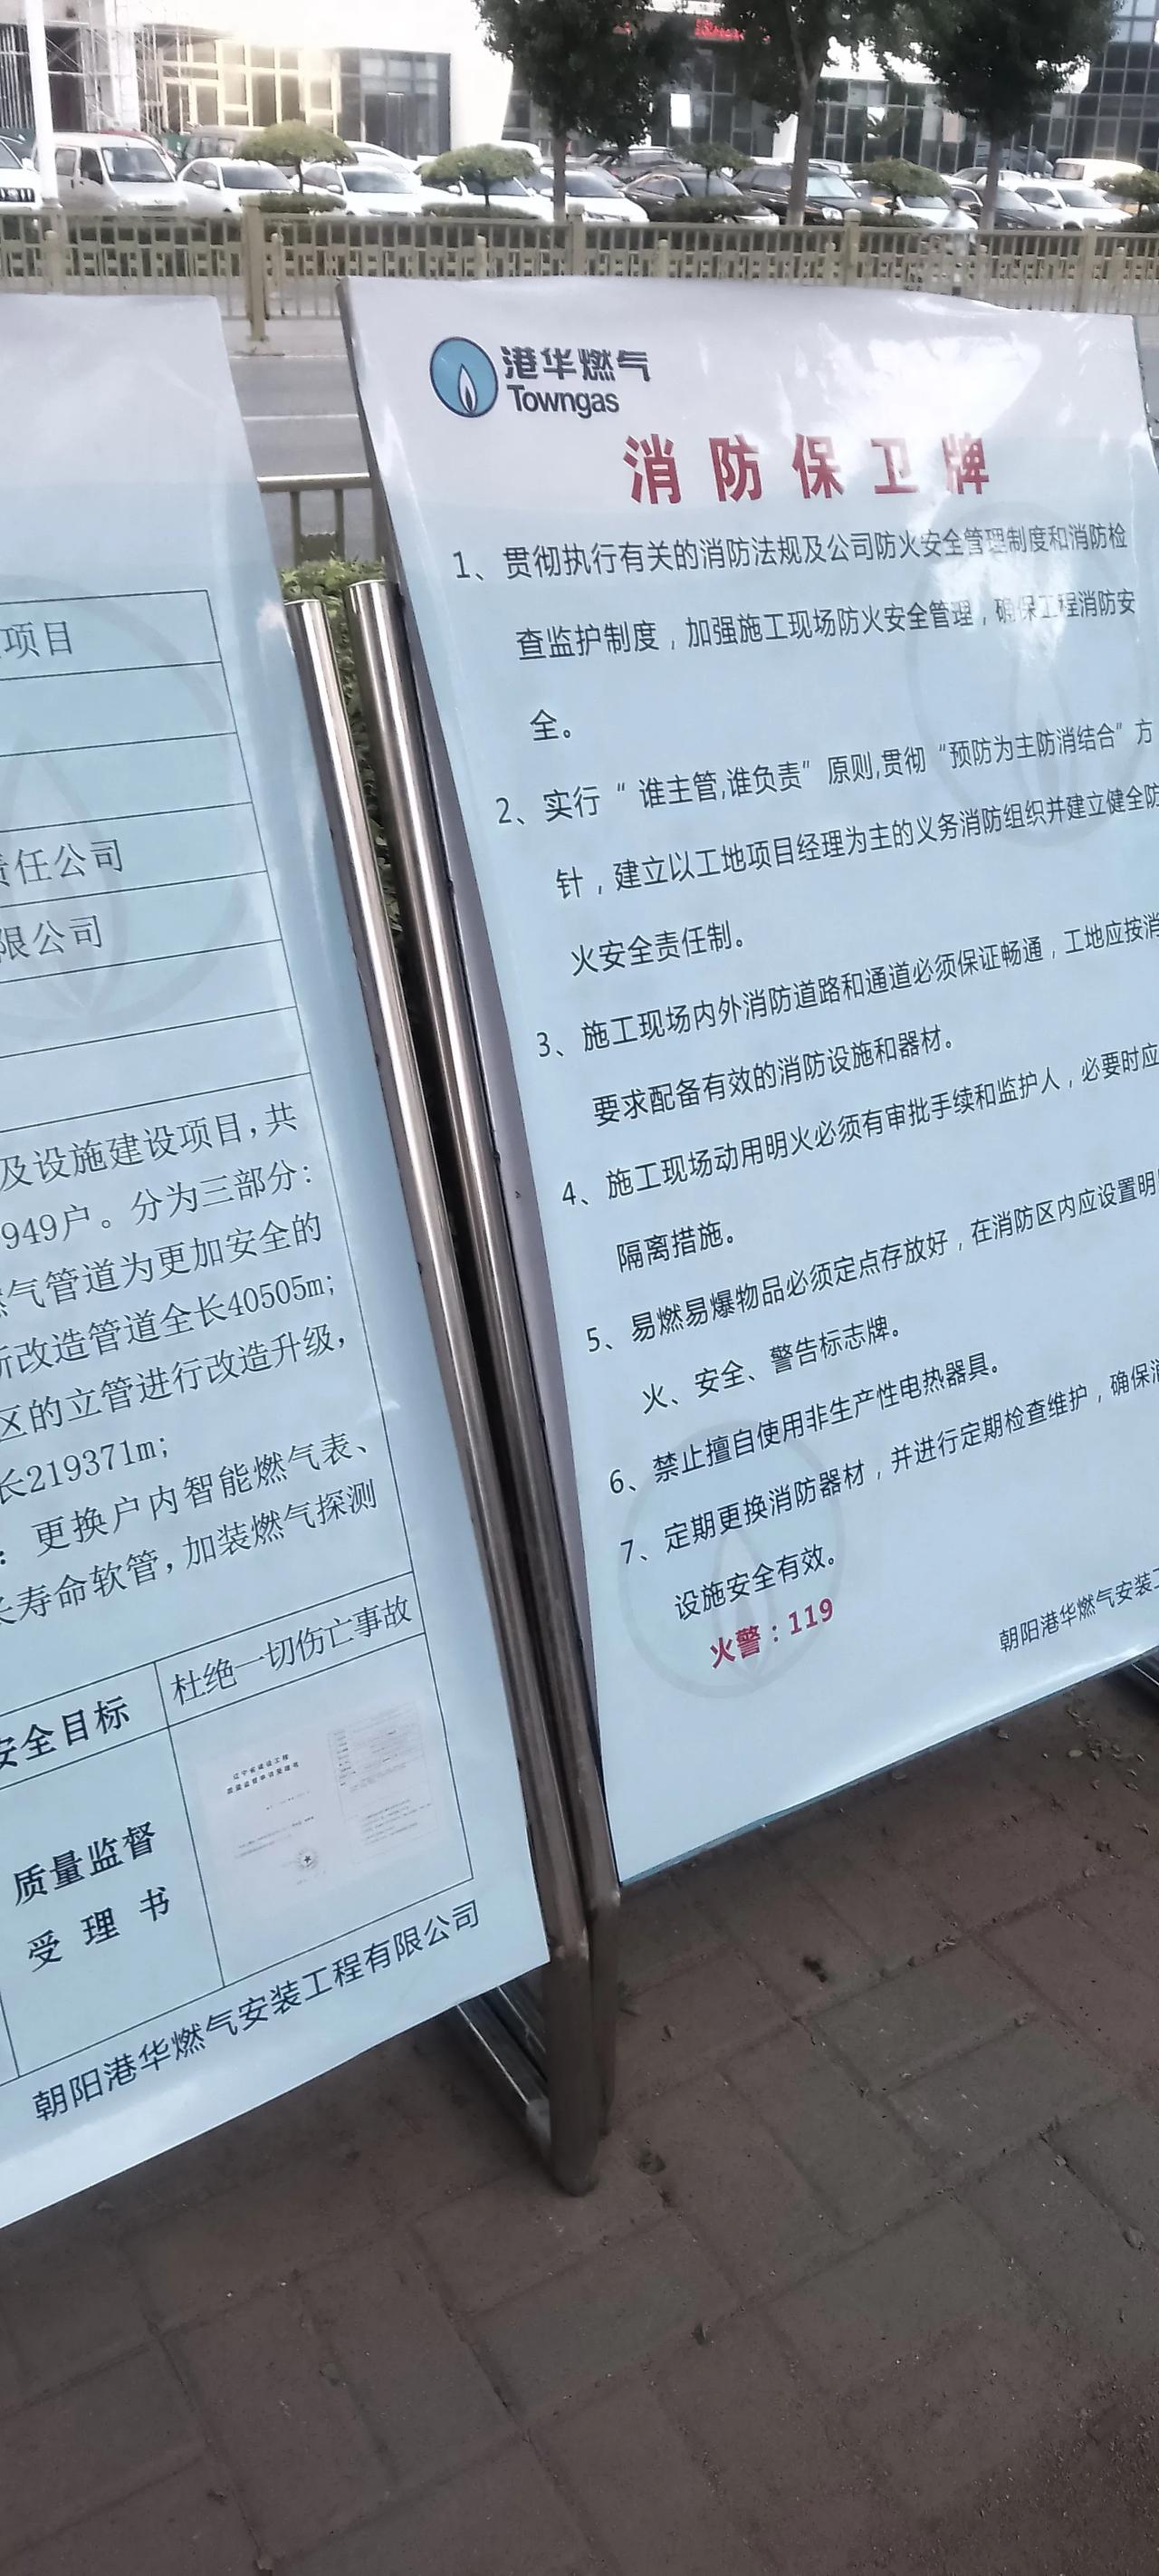 项目
责任公司
限公司
及设施建设项目，共
949户。分为三部分：
气管道为更加安全的
改造管道全长40505m；
区的立管进行改造升级，
长219371m；
：更换户内智能燃气表、
长寿命软管，加装燃气探测
安全目标
杜绝一切伤亡事故
质量监督
受理书
辽宁省建设工程
质量监督申请受理书
朝阳港华燃气安装工程有限公司
港华燃气
Towngas
消防保卫牌
1、贯彻执行有关的消防法规及公司防火安全管理制度和消防检
查监护制度，加强施工现场防火安全管理，确保工程消防安
全。
2、实行“谁主管,谁负责”原则,贯彻“预防为主防消结合”方
针，建立以工地项目经理为主的义务消防组织并建立健全防
火安全责任制。
3、施工现场内外消防道路和通道必须保证畅通，工地应按消
要求配备有效的消防设施和器材。
4、施工现场动用明火必须有审批手续和监护人，必要时应
隔离措施。
5、易燃易爆物品必须定点存放好，在消防区内应设置明
火、安全、警告标志牌。
6、禁止擅自使用非生产性电热器具。
7、定期更换消防器材，并进行定期检查维护，确保消
设施安全有效。
火警：119
朝阳港华燃气安装工